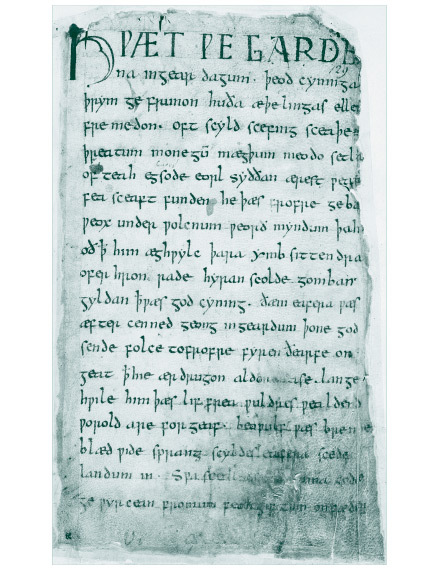 HǷÆT ǷE GARDE
na ingear dagum. þeod cyninga
þrym ge frunon huða æþelingas elle
fremedon. oft scyld scefing sceaþe
þreatum monegū mægþum meodo setla
of teah egsode eorl syððan ærest ƿea
fea sceaft funden he þæs frofre geba
ƿeox under ƿolcnum ƿeorð myndum þah
oð ꝥ him æghƿylc þara ymb sittendra
ofer hron rade hyran scolde gomban
gyldan ꝥ ƿæs god cyning. ðæm eafera ƿæs
æfter cenned geong ingeardum þone god
sende folce tofrofre fyren ðearfe on
geat ꝥ hie ær drugon aldor ase. lange
hƿile him þæs lif frea ƿuldres ƿealdend
ƿorold are for geaf. beoƿulf ƿæs breme
blæd ƿide sprang scyldes eafera scede
landum in. Sƿa sceal ma gode
ge ƿyrcean fromum feoh giftum